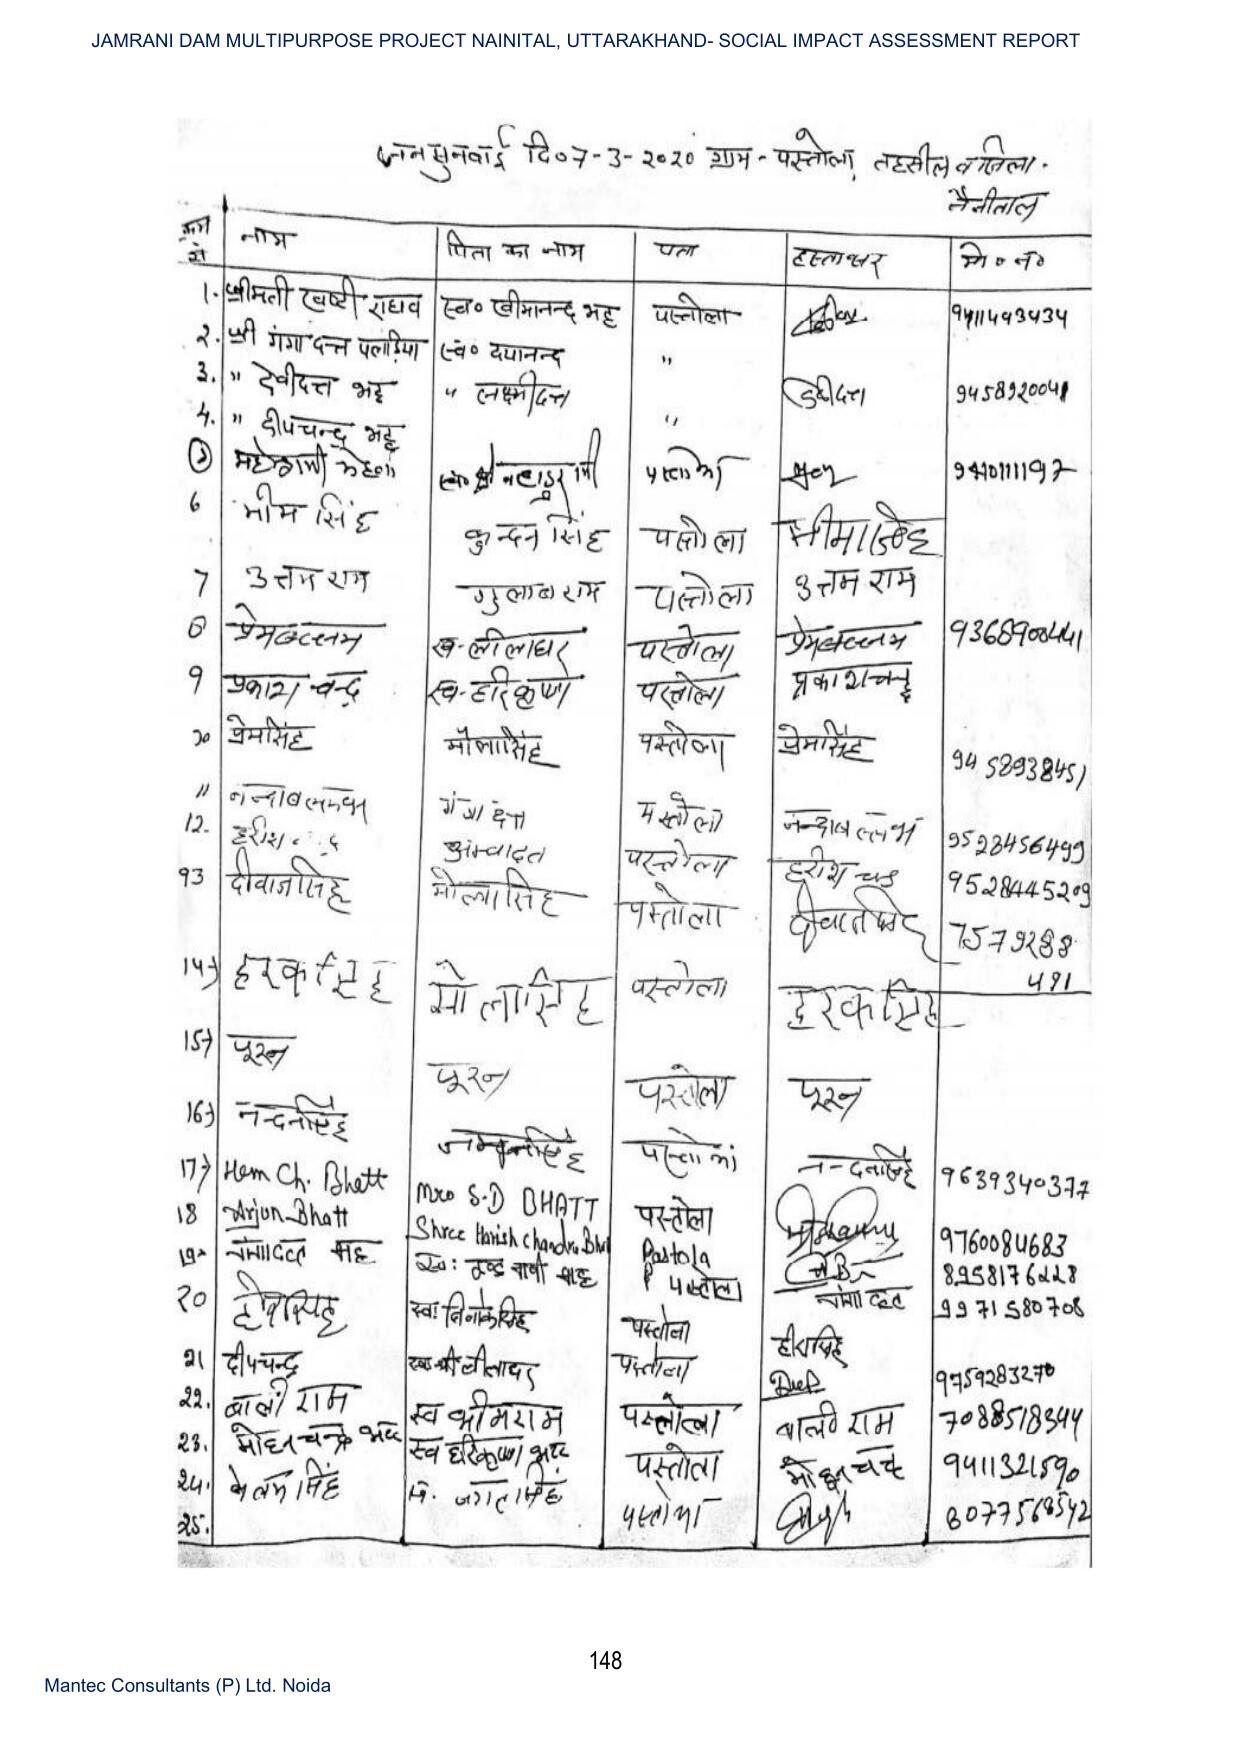 JAMRANI DAM MULTIPURPOSE PROJECT NAINITAL, UTTARAKHAND- SOCIAL IMPACT ASSESSMENT REPORT
जनसुनवाई दि० 7-3-2020 ग्राम - पस्तोला, तहसील व जिला -
नैनीताल
क्रम सं नाम पिता का नाम पता हस्ताक्षर मो० नं०
1. श्रीमती षष्टी राघव स्व० खीमानन्द भट्ट पस्तोला 9411493434
2. श्री गंगा दत्त पलड़िया स्व० दयानन्द "
3. " देवीदत्त भट्ट " लक्ष्मीदत्त देवीदत्त 9458920041
4. " दीपचन्द्र भट्ट "
पस्तोला
6 भीम सिंह कुन्दन सिंह पस्तोला भीम सिंह
7 उत्तम राम गुलाब राम पस्तोला उत्तम राम
8 प्रेमबल्लभ स्व- लीलाधर पस्तोला प्रेमबल्लभ 9368900441
9 प्रकाश चन्द्र स्व- हरिकृष्ण पस्तोला प्रकाश चन्द्र
10 प्रेमसिंह मोलासिंह पस्तोला प्रेमसिंह 9458938451
11 नन्दाबल्लभ गंगा दत्त पस्तोला नन्दाबल्लभ 9528456499
12. हरीश चन्द्र अम्बादत्त पस्तोला हरीश चन्द्र 9528445209
13 दीवानसिंह मोलासिंह पस्तोला दीवानसिंह 7579288
491
14) हरकसिंह मोलासिंह पस्तोला हरकसिंह
15) पूरन पूरन पस्तोला पूरन
16) नन्दनसिंह पस्तोला नन्दनसिंह
17) Hem Ch. Bhatt S.D BHATT पस्तोला 9639340377
18 Arjun Bhatt Shree Harish Chandra Bhatt Pastola 9760084683
19 पस्तोला 8958176228
20 पस्तोला हीरासिंह 9971580708
21 दीपचन्द्र स्व० श्री लीलाधर पस्तोला Deep 9759283270
22. बाली राम स्व भीमराम पस्तोला बाली राम 7088518344
23. मोहन चन्द्र भट्ट स्व हरिकृष्ण भट्ट पस्तोला मोहन चन्द्र 9411321590
24. सिंह जगत सिंह पस्तोला 8077568542
25.
148
Mantec Consultants (P) Ltd. Noida